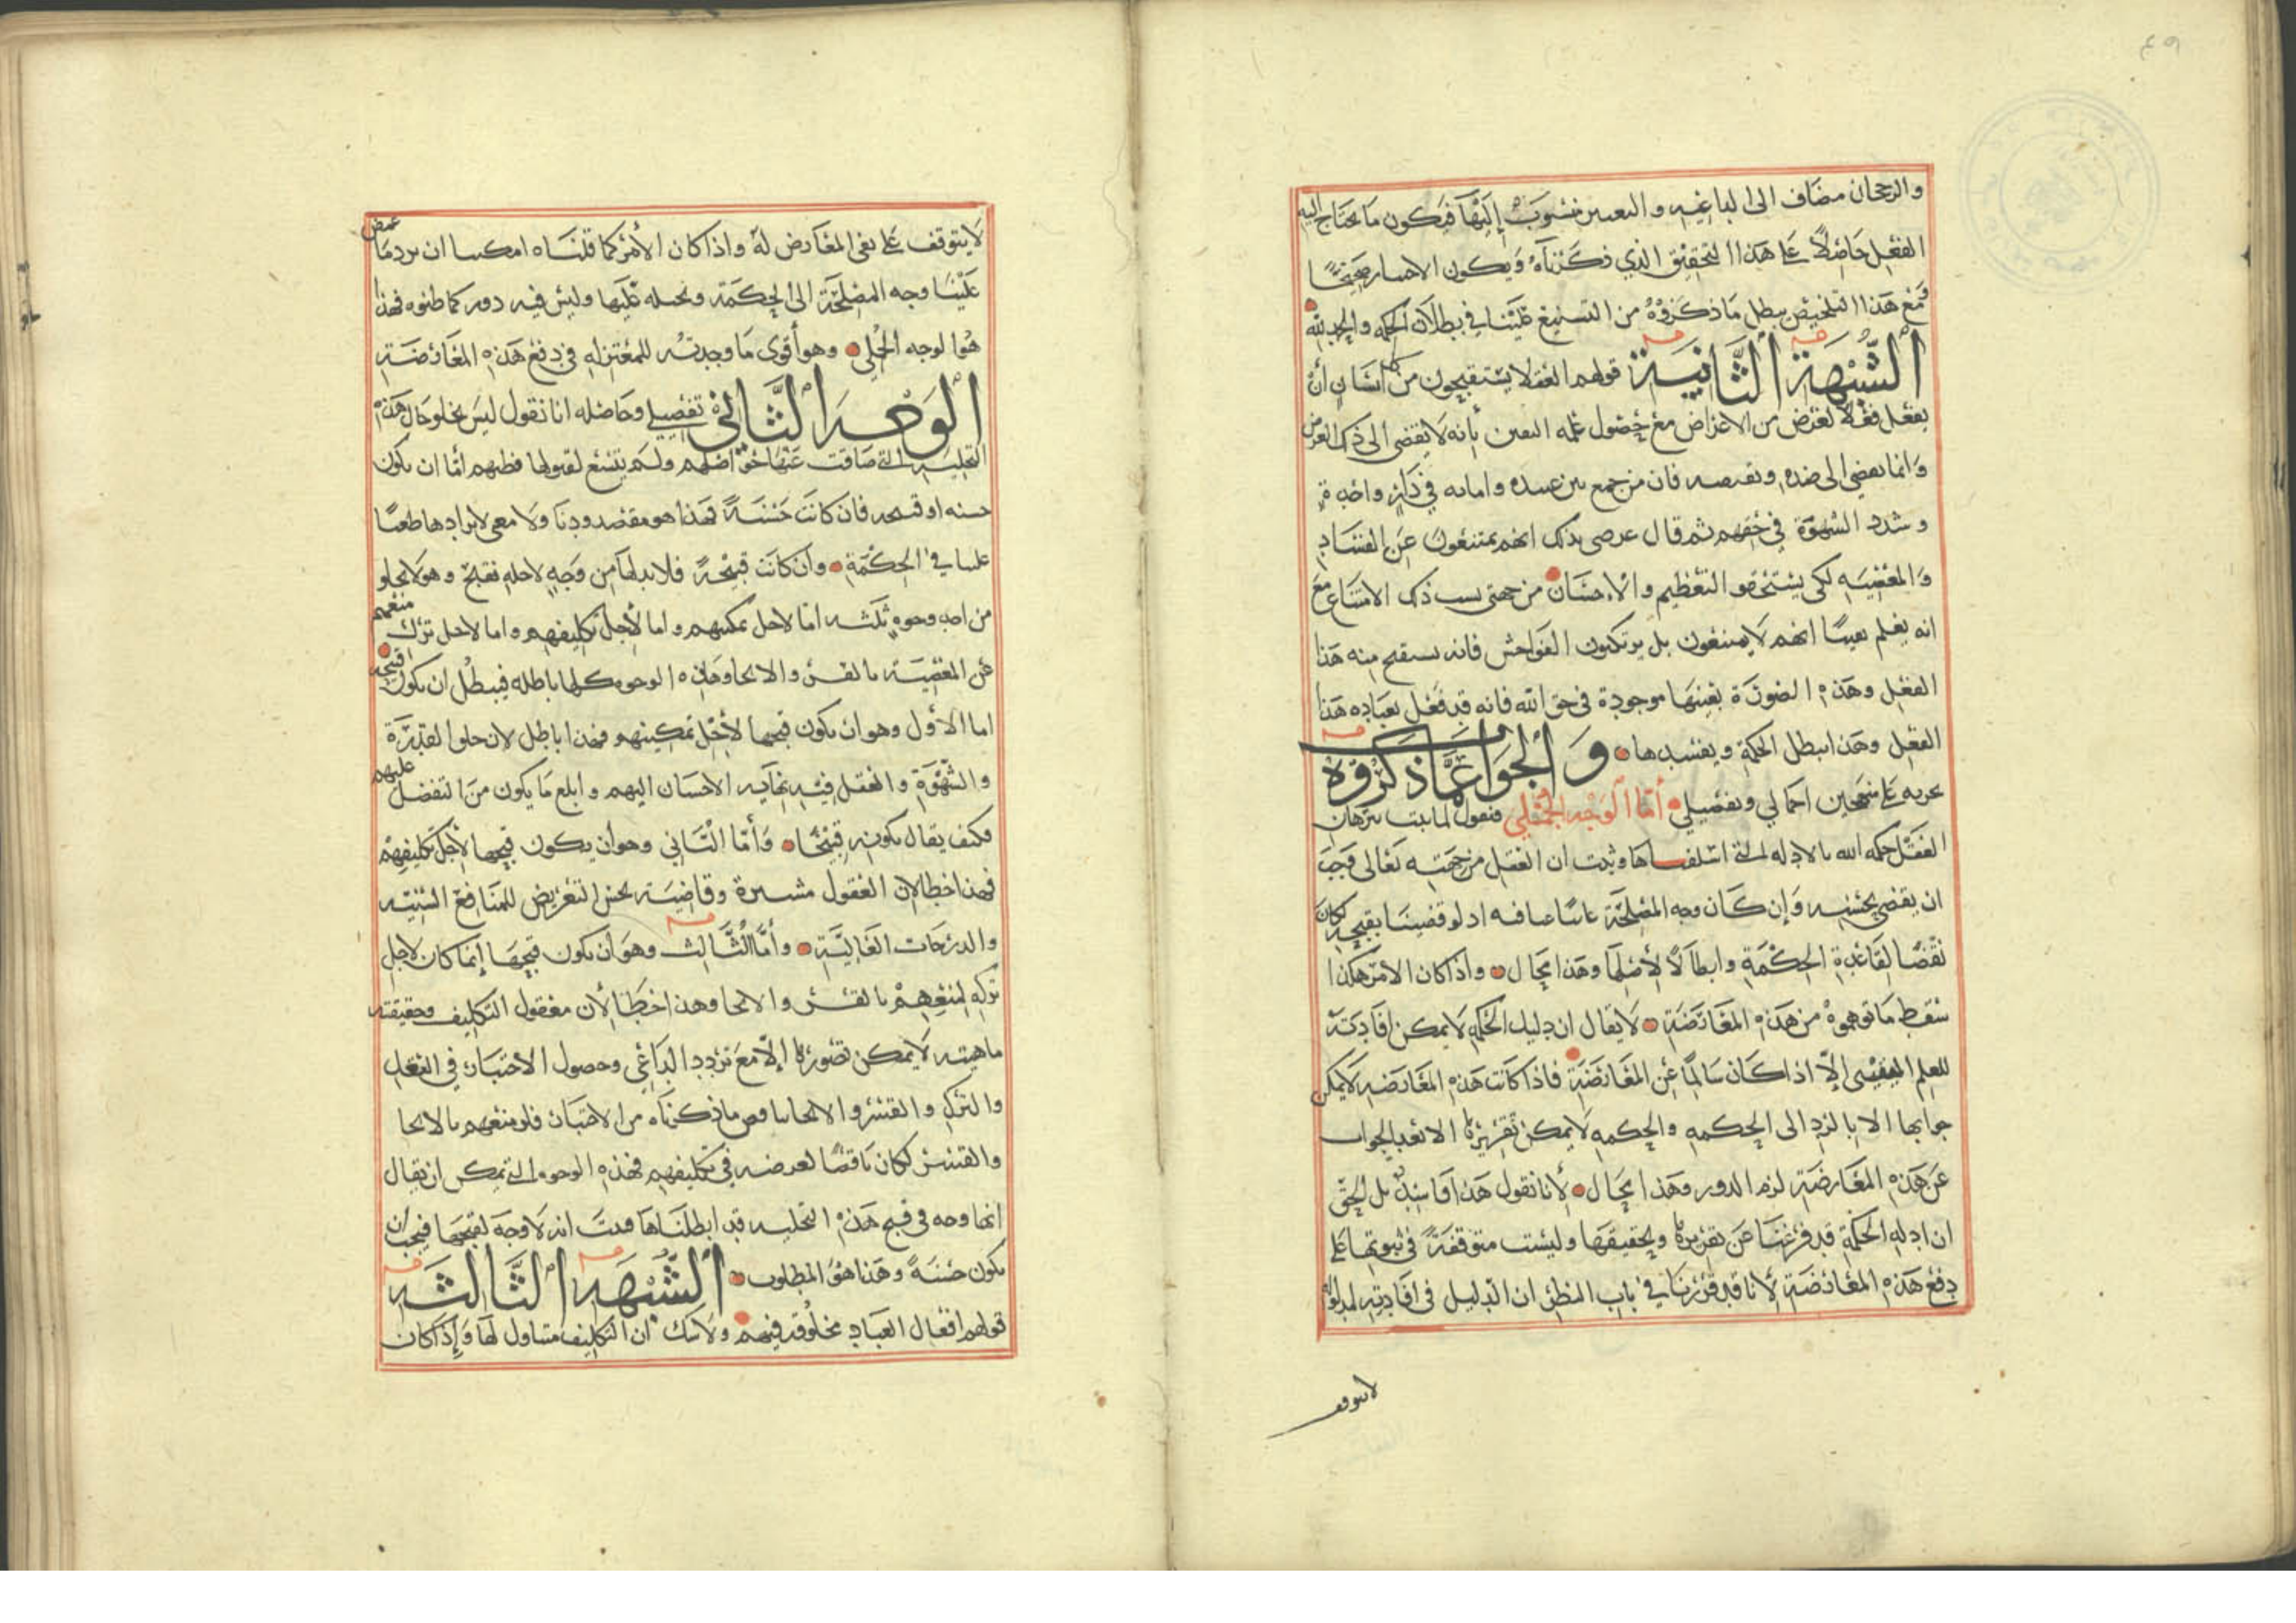 ٤٩
والرجحان مضاف الى الداعيه والتعيين منسوب إليها فيكون ما يحتاج اليه
الفعل حاصلا على هذا التحقيق الذي ذكرناه ويكون الاختيار صحيحًا
فمع هذا التلخيص يبطل ما ذكروه من التشنيع علينا في بطلان الحكمه والحمد لله
الشبهة الثانية قولهم العقلا يستقبحون من كل انسان أن
يفعل فعلا لغرض من الاغراض مع حصول علمه اليقين بأنه لا يفضى الى ذلك الغرض
وانما يفضي الى ضده ونقيضه فان من جمع بين عبيده وامائه في دار واحدة
وشدد الشهوة في حقهم ثم قال غرضي بذلك انهم يمتنعون عن الفساد
والمعصيه لكى يستحقوا التعظيم والاحسان من جهتي بسبب ذلك الامتناع مع
انه يعلم يقينًا انهم لا يمتنعون بل يرتكبون الفواحش فانه يستقبح منه هذا
الفعل وهذه الصورة بعينها موجودة في حق الله فانه قد فعل بعباده هذا
الفعل وهذا يبطل الحكمة ويفسدها والجواب عما ذكروه
نحريه على منهجين اجمالي وتفصيلي أما الوجه الجملي فنقول لما ثبت ببرهان
العقل حكمه الله بالادله التي اسلفناها وثبت ان الفعل من جهته تعالى فجب
ان يقضى بحسنه وإن كان وجه المصلحة غائبًا عنا فيه اذ لو قضينا بقبحه لكان
نقضًا لقاعدة الحكمة وابطالًا لأصلها وهذا محال واذا كان الأمر هكذا
سقط ما توهموه من هذه المعارضة لا يقال ان دليل الحكمه لا يمكن افادته
للعلم اليقيني إلا اذا كان سالمًا عن المعارضة فاذا كانت هذه المعارضه لا يمكن
جوابها الا بالرد الى الحكمه والحكمه لا يمكن تقريرها الا بعد الجواب
عن هذه المعارضة لزم الدور وهذا محال لأنا نقول هذا فاسد بل الحق
ان ادله الحكمة قد فرغنا عن تقريرها وتحقيقها وليست متوقفة في ثبوتها على
دفع هذه المعارضة لأنا قد قررنا في باب النظر ان الدليل في افادته لمدلوله
لا يتوقف
لا يتوقف على نفى المعارض له واذا كان الأمر كما قلناه امكننا ان نرد ما غمض
علينا وجه المصلحة الى الحكمة ونحيله عليها وليس فيه دور كما ظنوه فهذا
هو الوجه الجملي وهو أقوى ما وجدته للمعتزله في دفع هذه المعارضة
الوجه الثاني تفصيلي وحاصله انا نقول ليس يخلو حال هذه
التخلية التي ضاقت عنها حواصلهم ولم يتسع لقبولها فطنهم أما ان يكون
حسنه او قبيحه فان كانت حسنة فهذا هو مقصودنا ولا معنى لايرادها طعنًا
علينا في الحكمة وان كانت قبيحة فلا بد لها من وجه لاجله تقبح وهو لا يخلو
من احد وجوه ثلثه اما لاجل تمكينهم واما لأجل تكليفهم واما لاجل ترك منعهم
عن المعصية بالقسر والالجا وهذه الوجوه كلها باطله فيبطل ان يكون قبيحه
اما الأول وهو ان يكون قبحها لأجل تمكينهم فهذا باطل لان خلق القدرة
والشهوة والعقل فيه نهايه الاحسان اليهم وابلغ ما يكون من التفضل عليهم
فكيف يقال بكونه قبيحًا وأما الثاني وهو أن يكون قبحها لأجل تكليفهم
فهذا خطا لان العقول مشيرة وقاضية بحسن التعريض للمنافع السنيه
والدرجات العالية وأما الثالث وهو أن يكون قبحها إنما كان لاجل
تركه لمنعهم بالقسر والالجا وهذا خطا لأن معقول التكليف وحقيقته
ماهيته لا يمكن تصورها إلا مع تردد الداعي وحصول الاختيار في الفعل
والترك والقسر والالجا يناقض ما ذكرناه من الاختيار فلو منعهم بالالجا
والقسر لكان ناقضًا لغرضه في تكليفهم فهذه الوجوه التي يمكن ان يقال
انها وجه في قبح هذه التخليه قد ابطلناها فثبت انه لا وجه لقبحها فيجب أن
يكون حسنة وهذا هو المطلوب الشبهه الثالثه
قولهم افعال العباد مخلوقه فيهم ولا شك ان التكليف متناول لها وإذا كان